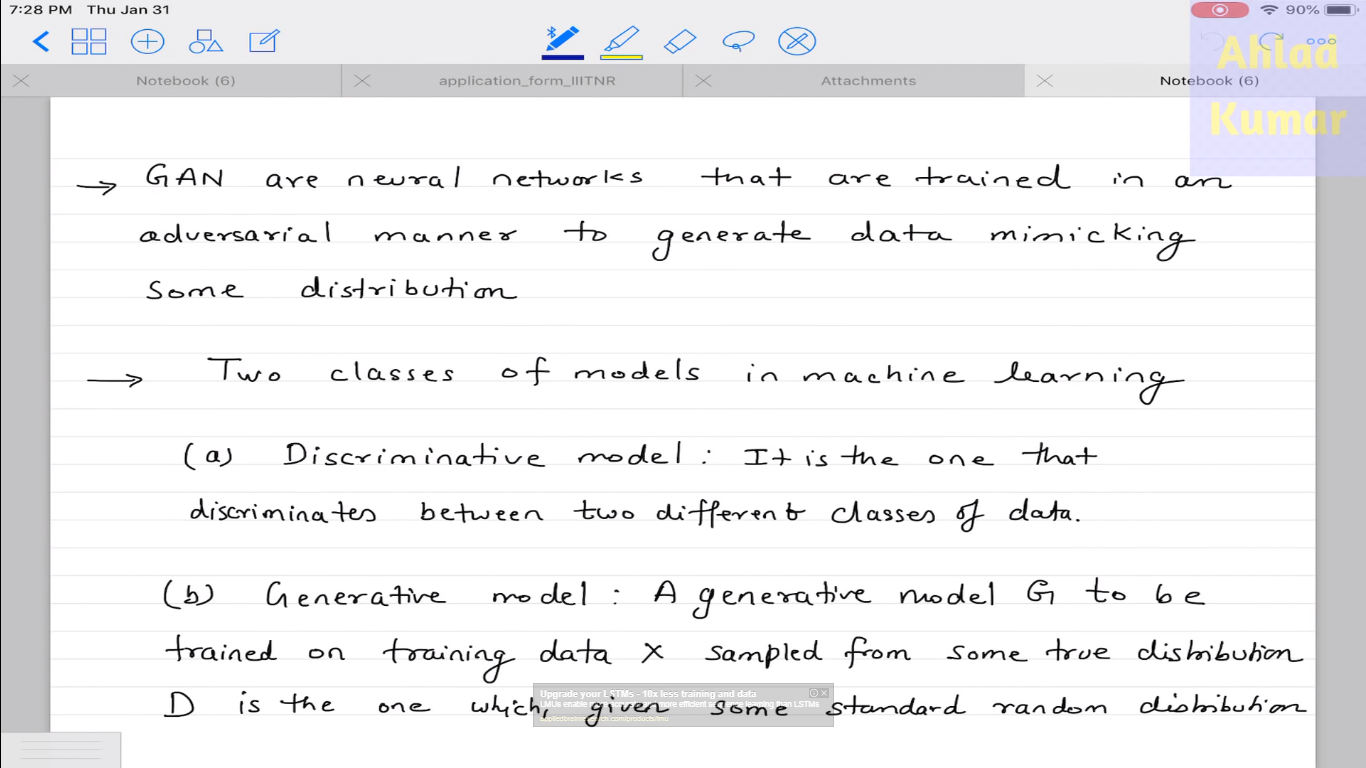 7:28 PM Thu Jan 31
90%
Notebook (6)
application_form_IIITNR
Attachments
Notebook (6)
Ahlad
Kumar
→ GAN are neural networks that are trained in an
adversarial manner to generate data mimicking
some distribution
→ Two classes of models in machine learning
(a) Discriminative model : It is the one that
discriminates between two different classes of data.
(b) Generative model : A generative model G to be
trained on training data X sampled from some true distribution
D is the one which, given some standard random distribution
Upgrade your LSTMs - 10x less training and data
LMUs enable more efficient learning than LSTMs